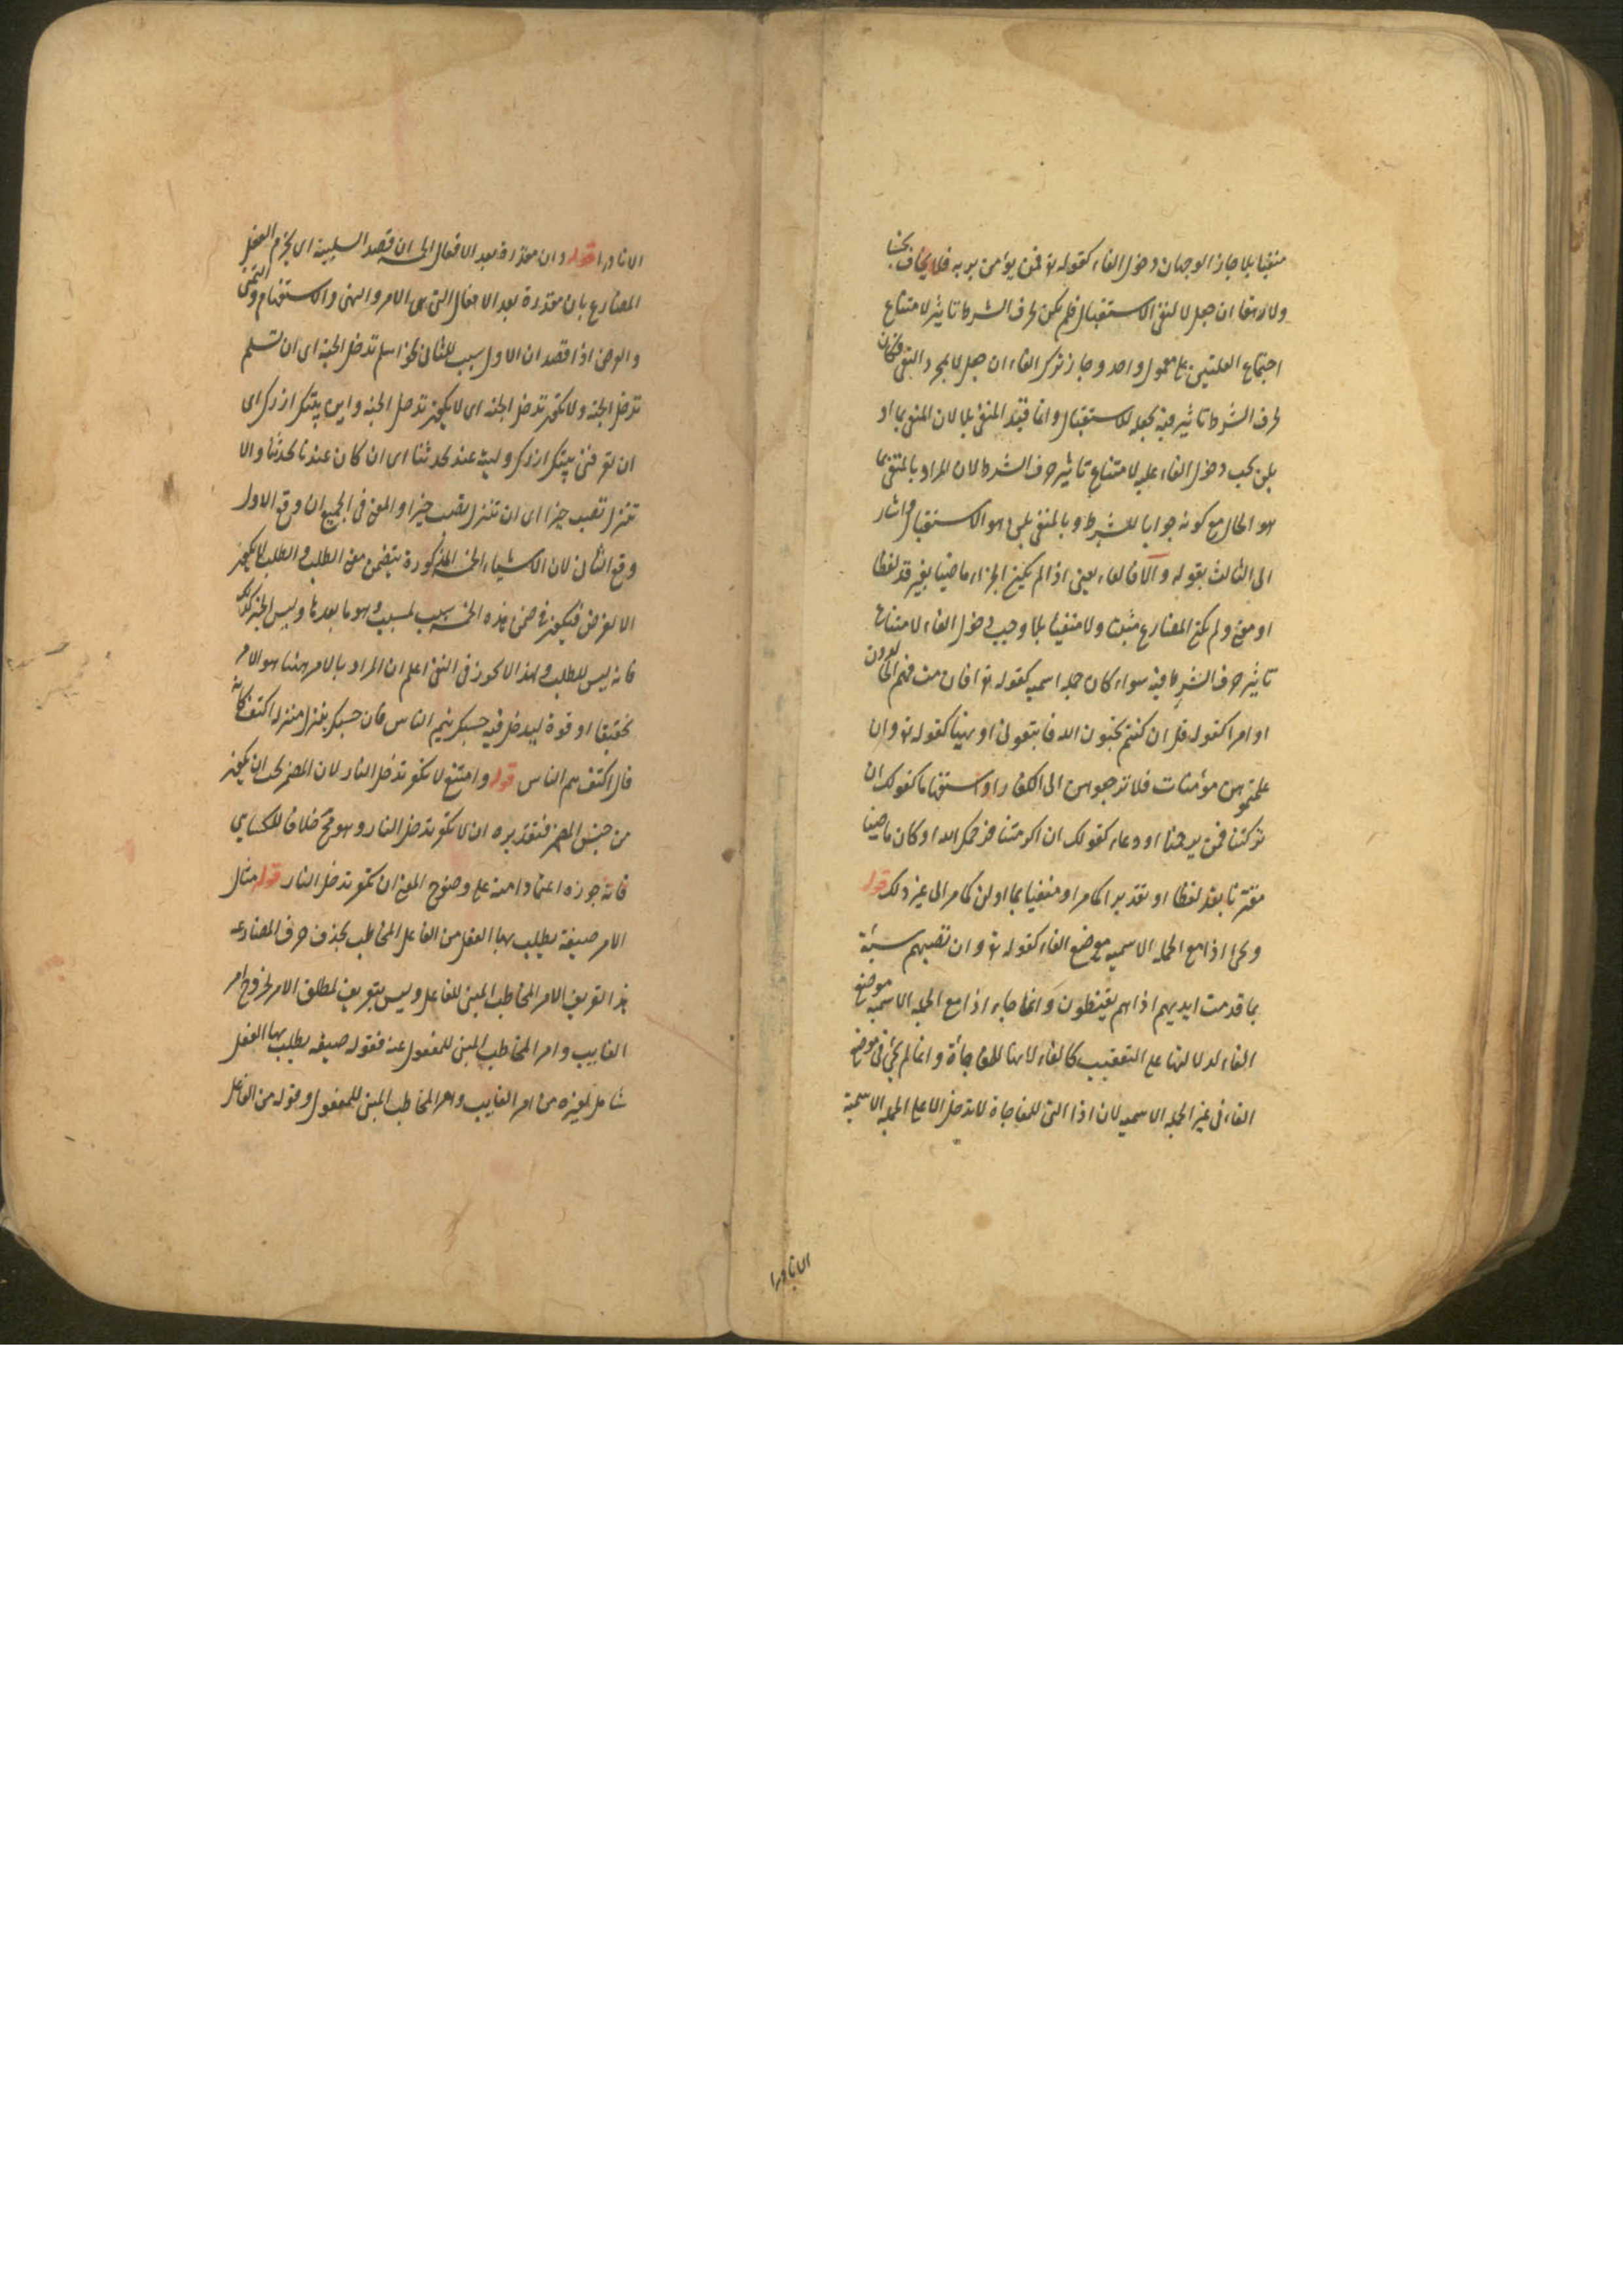 منفيا بلا جاز الوجهان دخول الفاء كقوله تع فمن يؤمن بربه فلا يخاف بخسا
ولا رهقا ان جعل لا لنفى الاستقبال فلم يكن لحرف الشرط تاثير لامتناع
اجتماع العلتين على معمول واحد وجاز ترك الفاء ان جعل لا لمجرد النفى فكان
لحرف الشرط تاثير فيه بجعله للاستقبال وانما قيد المنفى بلا لان المنفى بما او
بلن يجب دخول الفاء عليه لامتناع تاثير حرف الشرط لان المراد بالمنفى بما
هو الحال مع كونه جوابا للشرط وبالمنفى بلن هو الاستقبال واشار
الى الثالث بقوله والا فالفاء يعنى اذا لم يكن الجزاء ماضيا بغير قد لفظا
او معنى ولم يكن المضارع مثبتا ولا منفيا بلا وجب دخول الفاء لامتناع
تاثير حرف الشرط فيه سواء كان جملة اسميه كقوله تع افان مت فهم الخالدون
او امرا كقوله قل ان كنتم تحبون الله فاتبعونى او نهيا كقوله تع وان
علمتموهن مؤمنات فلا ترجعوهن الى الكفار او استفهاما كقولك ان
تركتنا فمن يرحمنا او دعاء كقولك ان اكرمتنا فيرحمك الله او كان ماضيا
مقترنا بقد لفظا او تقديرا كما مر او منفيا بما او لن كما مر الى غير ذلك قوله
ويجئ اذا مع الجملة الاسميه موضع الفاء كقوله تع وان تصبهم سيئة
بما قدمت ايديهم اذا هم يقنطون وانما جاء اذا مع الجملة الاسميه موضع
الفاء لدلالتها على التعقيب كالفاء لانها للمفاجأة وانما لم يجئ فى موضع
الفاء فى غير الجملة الاسميه لان اذا التى للمفاجاة لا تدخل الا على الجملة الاسمية
الا نادرا
الا نادرا قوله وان مقدرة بعد الافعال الخمسة ان قصد السببية اى يجزم الفعل
المضارع بان مقدرة بعد الافعال التى هى الامر والنهى والاستفهام والتمنى
والعرض اذا قصد ان الاول سبب للثانى نحو اسلم تدخل الجنة اى ان تسلم
تدخل الجنة ولا تكفر تدخل الجنة اى لا تكفر تدخل الجنة واين بيتك ازرك اى
ان تعرفنى بيتك ازرك وليت عندك تحدثنا اى ان كان عندنا تحدثنا والا
تنزل تصب خيرا اى ان تنزل تصب خيرا والمعنى فى الجميع ان وقع الاول
وقع الثانى لان الاشياء الخمسة المذكورة يتضمن معنى الطلب والطلب لا يكون
الا لغرض فيكون فى ضمن هذه الخمسة سبب لمسبب وهو ما بعدها وليس الخبر كذلك
فانه ليس للطلب ولهذا لا يجوز فى النفى اعلم ان المراد بالامر ههنا هو الامر
تحقيقا او قوة ليدخل فيه حسبك ينم الناس فان حسبك بمنزلة اكتف كانه
قال اكتف ينم الناس قوله وامتنع لا تكفر تدخل النار لان المضمر يجب ان يكون
من جنس المظهر فتقديره ان لا تكفر تدخل النار وهو محال خلافا للكسايى
فانه جوزه اعتمادا منه على وضوح المعنى ان تكفر تدخل النار قوله مثال
الامر صيغة يطلب بها الفعل من الفاعل المخاطب بحذف حرف المضارعه
هذا تعريف الامر المخاطب المبنى للفاعل وليس بتعريف لمطلق الامر لخروج امر
الغايب وامر المخاطب المبنى للمفعول عنه فقوله صيغه يطلب بها الفعل
شامل لغيره من امر الغايب وامر المخاطب المبنى للمفعول وقوله من الفاعل